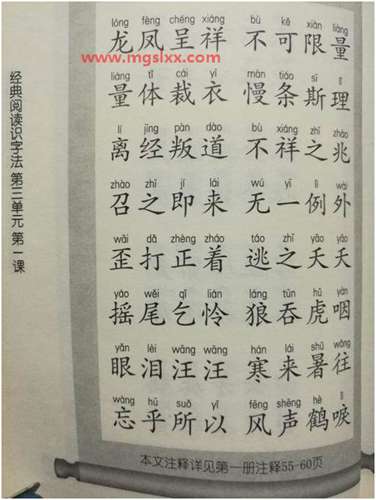 lóng fèng chéng xiáng bù kě xiàn liàng
龙凤呈祥 不可限量
www.mgslxx.com
liàng tǐ cái yī màn tiáo sī lǐ
量体裁衣 慢条斯理
lí jīng pàn dào bù xiáng zhī zhào
离经叛道 不祥之兆
zhào zhī jí lái wú yī lì wài
召之即来 无一例外
wāi dǎ zhèng zháo táo zhī yāo yāo
歪打正着 逃之夭夭
yáo wěi qǐ lián láng tūn hǔ yàn
摇尾乞怜 狼吞虎咽
yǎn lèi wāng wāng hán lái shǔ wǎng
眼泪汪汪 寒来暑往
wàng hū suǒ yǐ fēng shēng hè lì
忘乎所以 风声鹤唳
本文注释详见第一册注释55-60页
经典阅读识字法 第三单元 第一课